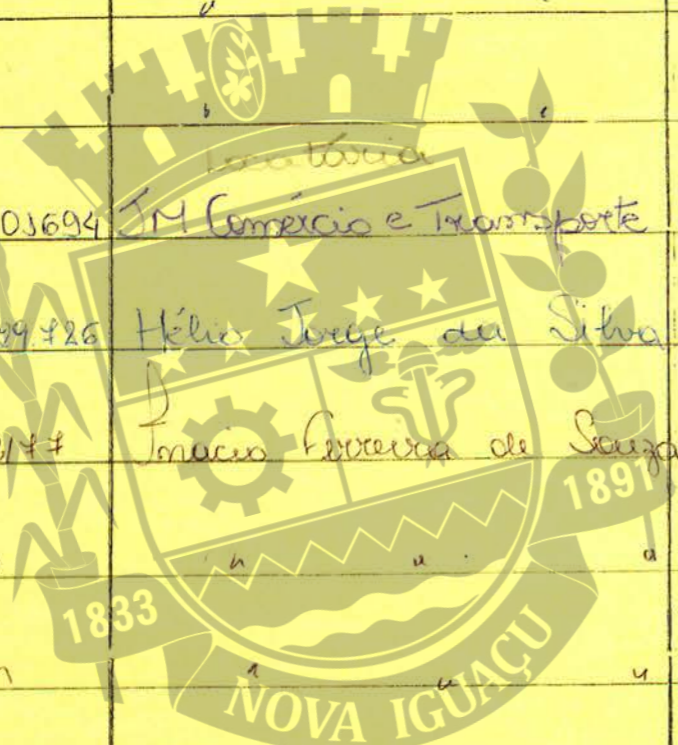 " " "
Locatária
01694 JM Comércio e Transporte
99.726 Hélio Jorge da Silva
/77 Inacio Ferreira de Souza
1891
" " "
1833
" " "
NOVA IGUAÇU